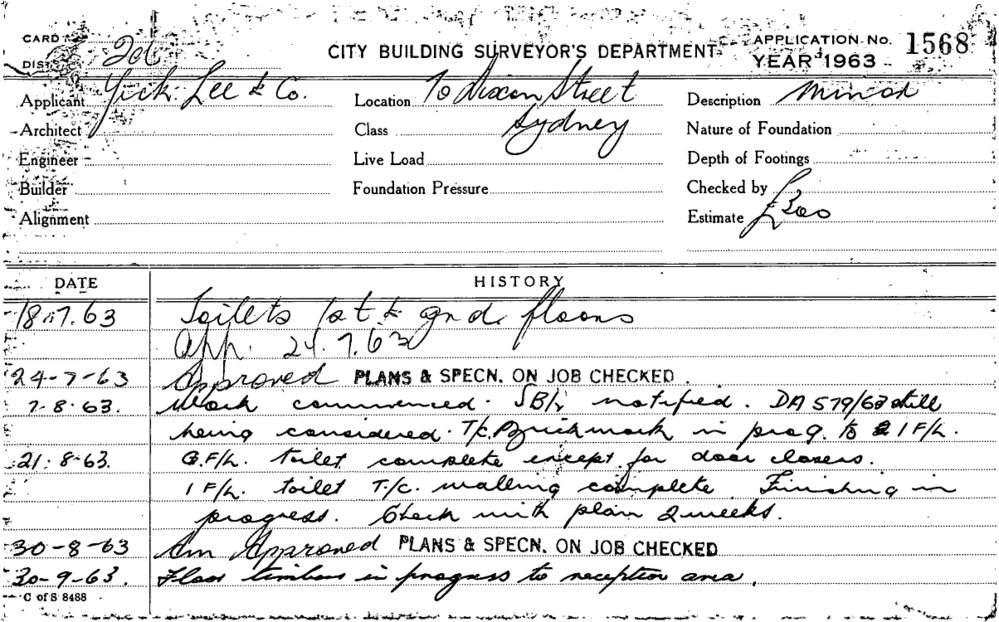 CARD No. 206
DIST
CITY BUILDING SURVEYOR'S DEPARTMENT
APPLICATION No. 1568
YEAR 1963
Applicant Yick Lee & Co.
Location 70 Dixon Street
Description Minor
Architect
Class Sydney
Nature of Foundation
Engineer
Live Load
Depth of Footings
Builder
Foundation Pressure
Checked by
Alignment
Estimate £300
DATE HISTORY
18.7.63 Toilets 1st & grd. floors
App. 24.7.63
24-7-63 Approved PLANS & SPECN. ON JOB CHECKED
7.8.63. Work commenced. SB/r notified. DA 579/63 still
being considered. T/c. Brickwork in prog. to 1 F/L.
21.8.63. G.F/L. toilet complete except for door closers.
1 F/L. toilet T/C. walling complete. Finishing in
progress. Check with plan 2 weeks.
30-8-63 Am Approved PLANS & SPECN. ON JOB CHECKED
30-9-63. Floor timbers in progress to reception area.
C of S 8488